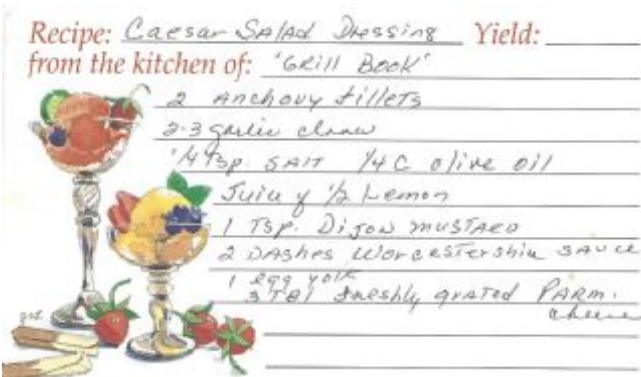 Recipe: Caesar Salad Dressing Yield:
from the kitchen of: 'Grill Book'
2 Anchovy fillets
2-3 garlic cloves
1/4 tsp. SALT 1/4 C olive oil
Juice of 1/2 Lemon
1 Tsp. Dijon mustard
2 Dashes Worcestershire sauce
1 egg yolk
3 TBl freshly grated Parm.
cheese